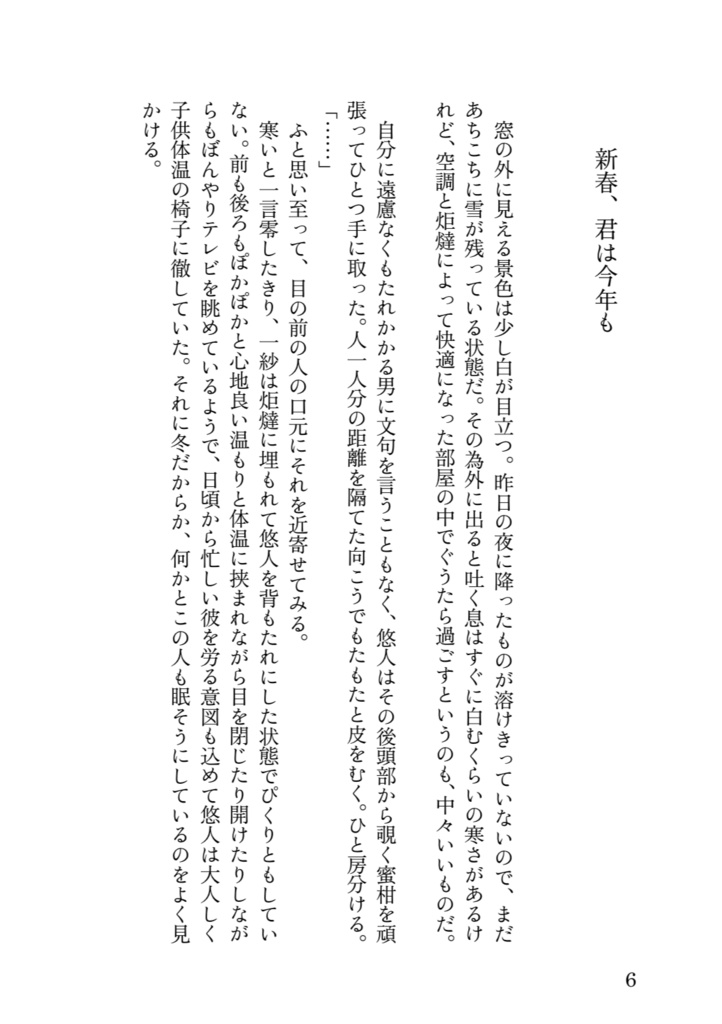 新春、君は今年も
窓の外に見える景色は少し白が目立つ。昨日の夜に降ったものが溶けきっていないので、まだ
あちこちに雪が残っている状態だ。その為外に出ると吐く息はすぐに白むくらいの寒さがあるけ
れど、空調と炬燵によって快適になった部屋の中でぐうたら過ごすというのも、中々いいものだ。
自分に遠慮なくもたれかかる男に文句を言うこともなく、悠人はその後頭部から覗く蜜柑を頑
張ってひとつ手に取った。人一人分の距離を隔てた向こうでもたもたと皮をむく。ひと房分ける。
「……」
ふと思い至って、目の前の人の口元にそれを近寄せてみる。
寒いと一言零したきり、一紗は炬燵に埋もれて悠人を背もたれにした状態でぴくりともしてい
ない。前も後ろもぽかぽかと心地良い温もりと体温に挟まれながら目を閉じたり開けたりしなが
らもぼんやりテレビを眺めているようで、日頃から忙しい彼を労る意図も込めて悠人は大人しく
子供体温の椅子に徹していた。それに冬だからか、何かとこの人も眠そうにしているのをよく見
かける。
6